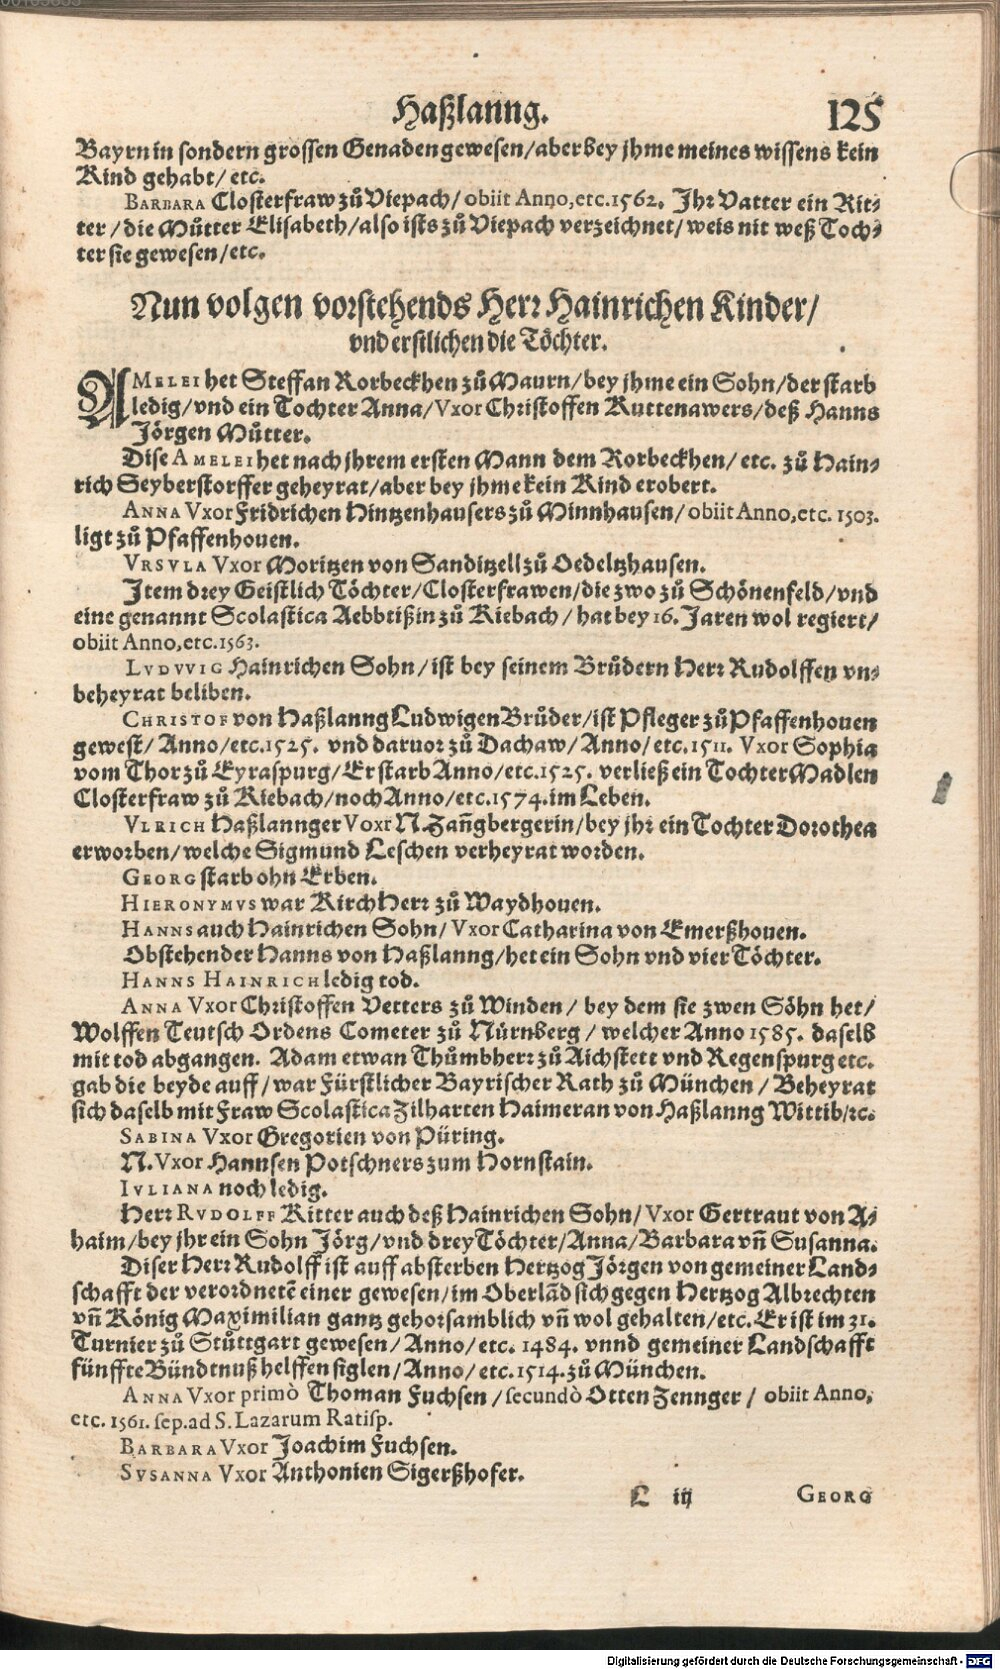 Haßlanng. 125
Bayrn in sondern grossen Genaden gewesen/aber bey jhme meines wissens kein
Kind gehabt/ etc.
BARBARA Closterfraw zů Viepach/ obiit Anno, etc. 1562. Ihr Vatter ein Rit-
ter/die Můtter Elisabeth/also ists zů Viepach verzeichnet/weis nit weß Toch-
ter sie gewesen/etc.
Nun volgen vorstehends Herr Hainrichen Kinder/
vnd erstlichen die Töchter.
AMELEI het Steffan Rorbeckhen zů Maurn/bey jhme ein Sohn/der starb
ledig/vnd ein Tochter Anna/Vxor Christoffen Ruttenawers/deß Hanns
Jörgen Můtter.
Dise AMELEI het nach jhrem ersten Mann dem Rorbeckhen/ etc. zů Hain-
rich Seyberstorffer geheyrat/aber bey jhme kein Kind erobert.
ANNA Vxor Fridrichen Hintzenhausers zů Minnhausen/ obiit Anno, etc. 1503.
ligt zů Pfaffenhouen.
VRSVLA Vxor Moritzen von Sanditzell zů Oedeltzhausen.
Item drey Geistlich Töchter/Closterfrawen/die zwo zů Schönenfeld/vnd
eine genannt Scolastica Aebbtißin zů Kiebach/hat bey 16. Jaren wol regiert/
obiit Anno, etc. 1563.
LVDVVIG Hainrichen Sohn/ist bey seinem Brůdern Herr Rudolffen vn-
beheyrat beliben.
CHRISTOF von Haßlanng Ludwigen Brůder/ist Pfleger zů Pfaffenhouen
gewest/Anno/etc. 1525. vnd daruor zů Dachaw/Anno/etc. 1511. Vxor Sophia
vom Thor zů Eyraspurg/Er starb Anno/etc. 1525. verließ ein Tochter Madlen
Closterfraw zů Kiebach/noch Anno/etc. 1574. im Leben.
VLRICH Haßlannger Voxr N. Zan̄gbergerin/bey jhr ein Tochter Dorothea
erworben/welche Sigmund Leschen verheyrat worden.
GEORG starb ohn Erben.
HIERONYMVS war Kirchherr zů Waydhouen.
HANNS auch Hainrichen Sohn/Vxor Catharina von Emerßhouen.
Obstehender Hanns von Haßlanng/het ein Sohn vnd vier Töchter.
HANNS HAINRICH ledig tod.
ANNA Vxor Christoffen Vetters zů Winden/ bey dem sie zwen Söhn het/
Wolffen Teutsch Ordens Cometer zů Nürnberg/ welcher Anno 1585. daselb
mit tod abgangen. Adam etwan Thůmbherr zů Aichstett vnd Regenspurg etc.
gab die beyde auff/war Fürstlicher Bayrischer Rath zů München/Beheyrat
sich daselb mit Fraw Scolastica Zilharten Haimeran von Haßlanng Wittib/rc.
SABINA Vxor Gregorien von Püring.
N. Vxor Hannsen Potschners zum Hornstain.
IVLIANA noch ledig.
Herr RVDOLFF Ritter auch deß Hainrichen Sohn/Vxor Gertraut von A-
haim/bey jhr ein Sohn Jörg/vnd drey Töchter/Anna/Barbara vn̄ Susanna.
Diser Herr Rudolff ist auff absterben Hertzog Jörgen von gemeiner Land-
schafft der verordnetē einer gewesen/im Oberlād sich gegen Hertzog Albrechten
vn̄ König Maximilian gantz gehorsamblich vn̄ wol gehalten/etc. Er ist im 31.
Turnier zů Stůttgart gewesen/Anno/etc. 1484. vnnd gemeiner Landschafft
fünffte Bündtnuß helffen siglen/Anno/etc. 1514. zů München.
ANNA Vxor primò Thoman Fuchsen/secundò Otten Zennger/ obiit Anno,
etc. 1561. sep. ad S. Lazarum Ratisp.
BARBARA Vxor Joachim Fuchsen.
SVSANNA Vxor Anthonien Sigerßhofer.
L iij GEORG
Digitalisierung gefördert durch die Deutsche Forschungsgemeinschaft - DFG